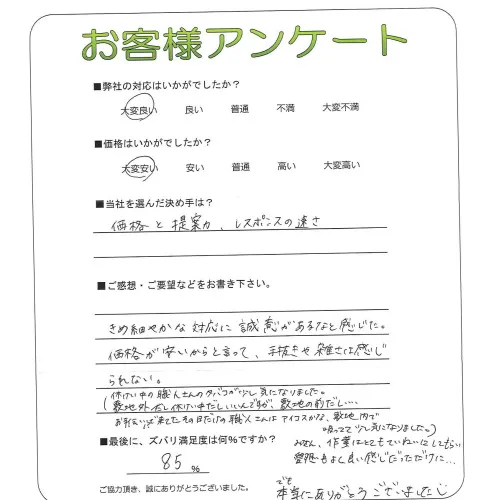 お客様アンケート
■弊社の対応はいかがでしたか？
大変良い 良い 普通 不満 大変不満
■価格はいかがでしたか？
大変安い 安い 普通 高い 大変高い
■当社を選んだ決め手は？
価格と提案力、レスポンスの速さ
■ご感想・ご要望などをお書き下さい。
きめ細やかな対応に誠意があるなと感じた。
価格が安いからと言って、手抜きや雑さは感じ
られない。
(休けい中の職人さんのタバコが少し気になりました。
敷地外だし休けい中だしいいんですが、敷地の前だし…
お手伝いで来てたその日だけの職人さんはアイコスかな、敷地内で
吸ってて少し気になりました。)
■最後に、ズバリ満足度は何%ですか？
85 %
みなさん、作業はとてもていねいにしてもらい
愛想もよし良い感じだっただけに…
でも
本当にありがとうございました
ご協力頂き、誠にありがとうございました。